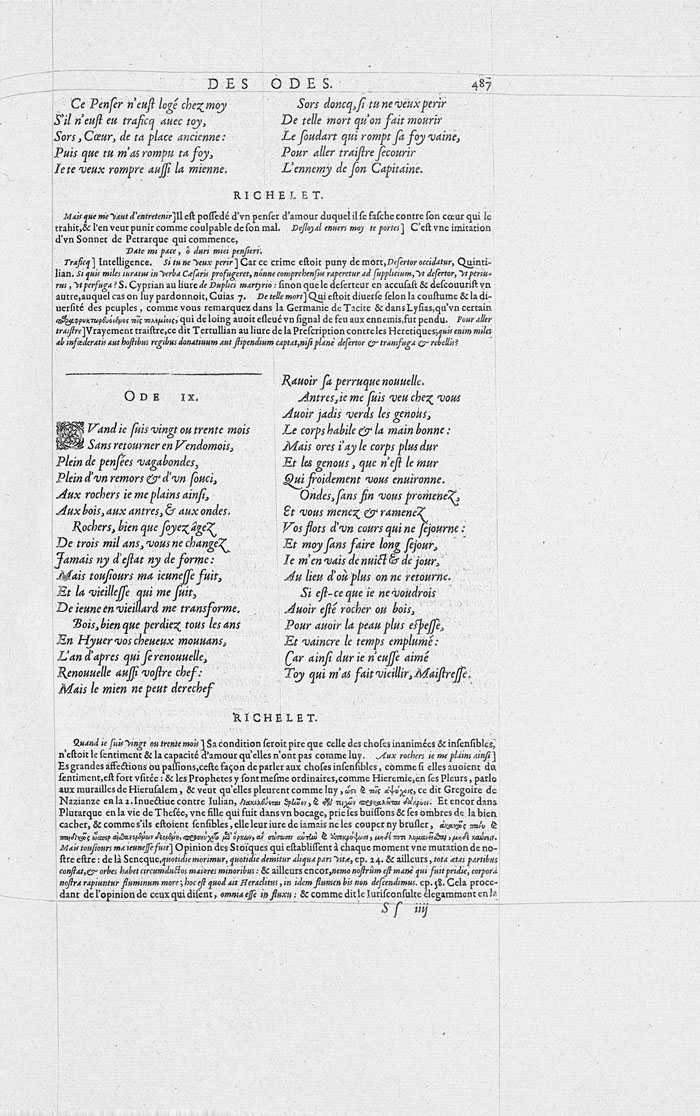 DES ODES. 487
Ce Penser n'eust logé chez moy
S'il n'eust eu traficq auec toy,
Sors, Cœur, de ta place ancienne:
Puis que tu m'as rompu ta foy,
Ie te veux rompre aussi la mienne.
Sors doncq, si tu ne veux perir
De telle mort qu'on fait mourir
Le soudart qui rompt sa foy vaine,
Pour aller traistre secourir
L'ennemy de son Capitaine.
RICHELET.
Mais que me vaut d'entretenir] Il est possedé d'vn penser d'amour duquel il se fasche contre son cœur qui le
trahit, & l'en veut punir comme coulpable de son mal. Desloyal enuers moy te portes] C'est vne imitation
d'vn Sonnet de Petrarque qui commence,
Date mi pace, ô duri miei pensieri.
Traficq] Intelligence. Si tu ne veux perir] Car ce crime estoit puny de mort, Desertor occidatur, Quinti-
lian. Si quis miles iuratus in verba Cæsaris profugeret, nónne comprehensus raperetur ad supplicium, vt desertor, vt periu-
rus, vt perfuga? S. Cypsian au liure de Duplici martyrio: sinon que le deserteur en accusast & descouurist vn
autre, auquel cas on luy pardonnoit, Cuias 7. De telle mort] Qui estoit diuerse selon la coustume & la di-
uersité des peuples, comme vous remarquez dans la Germanie de Tacite & dans Lysias, qu'vn certain
qui de loing auoit esleué vn signal de feu aux ennemis, fut pendu. Pour aller
traistre] Vrayement traistre, ce dit Tertullian au liure de la Prescription contre les Heretiques, quis enim miles
ab infœderatis aut hostibus regibus donatiuum aut stipendium captat, nisi planè desertor & transfuga & rebellis?
ODE IX.
QVand ie suis vingt ou trente mois
Sans retourner en Vendomois,
Plein de pensées vagabondes,
Plein d'vn remors & d'vn souci,
Aux rochers ie me plains ainsi,
Aux bois, aux antres, & aux ondes.
Rochers, bien que soyez âgez
De trois mil ans, vous ne changez
Jamais ny d'estat ny de forme:
Mais tousiours ma ieunesse fuit,
Et la vieillesse qui me suit,
De ieune en vieillard me transforme.
Bois, bien que perdiez tous les ans
En Hyuer vos cheueux mouuans,
L'an d'apres qui se renouuelle,
Renouuelle aussi vostre chef:
Mais le mien ne peut derechef
Rauoir sa perruque nouuelle.
Antres, ie me suis veu chez vous
Auoir jadis verds les genous,
Le corps habile & la main bonne:
Mais ores i'ay le corps plus dur
Et les genous, que n'est le mur
Qui froidement vous enuironne.
Ondes, sans fin vous promenez,
Et vous menez & ramenez
Vos flots d'vn cours qui ne sejourne:
Et moy sans faire long sejour,
Ie m'en vais de nuict & de jour,
Au lieu d'où plus on ne retourne.
Si est-ce que ie ne voudrois
Auoir esté rocher ou bois,
Pour auoir la peau plus espesse,
Et vaincre le temps emplumé:
Car ainsi dur ie n'eusse aimé
Toy qui m'as fait vieillir, Maistresse.
RICHELET.
Quand ie suis vingt ou trente mois] Sa condition seroit pire que celle des choses inanimées & insensibles,
n'estoit le sentiment & la capacité d'amour qu'elles n'ont pas comme luy. Aux rochers ie me plains ainsi]
Es grandes affections ou passions, ceste façon de parler aux choses insensibles, comme si elles auoient du
sentiment, est fort vsitée: & les Prophetes y sont mesme ordinaires, comme Hieremie, en ses Pleurs, parlo
aux murailles de Hierusalem, & veut qu'elles pleurent comme luy, ce dit Gregoire de
Nazianze en la 2. Inuectiue contre Iulian, Et encor dans
Plutarque en la vie de Thesée, vne fille qui fuit dans vn bocage, prie les buissons & ses ombres de la bien
cacher, & comme s'ils estoient sensibles, elle leur iure de iamais ne les couper ny brusler,
Mais tousiours ma ieunesse fuit] Opinion des Stoïques qui establissent à chaque moment vne mutation de no-
stre estre: de là Seneque, quotidie morimur, quotidie demitur aliqua pars vitæ, ep. 24. & ailleurs, tota ætas partibus
constat, & orbes habet circumductos maiores minoribus: & ailleurs encor, nemo nostrûm est manè qui fuit pridie, corpora
nostra rapiuntur fluminum more; hoc est quod ait Heraclitus, in idem flumen bis non descendimus. ep. 58. Cela proce-
dant de l'opinion de ceux qui disent, omnia esse in fluxu: & comme dit le Iurisconsulte élegamment en la
S s iiij